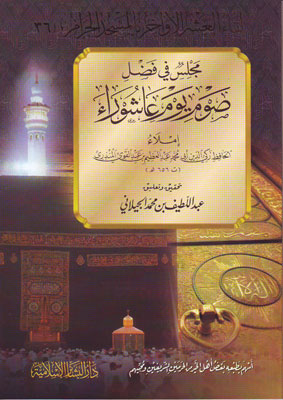 لقاء العشر الأواخر بالمسجد الحرام (٣٦)
مجلس في فضل
صوم يوم عاشوراء
إملاء
الحافظ زكي الدين أبي محمد عبد العظيم بن عبد القوي المنذري
(ت ٦٥٦ هـ)
تحقيق وتعليق
عبد اللطيف بن محمد الجيلاني
أسهم بطبعه بعض أهل الخير من الحرمين الشريفين ومحبيهم
دار البشائر الإسلامية